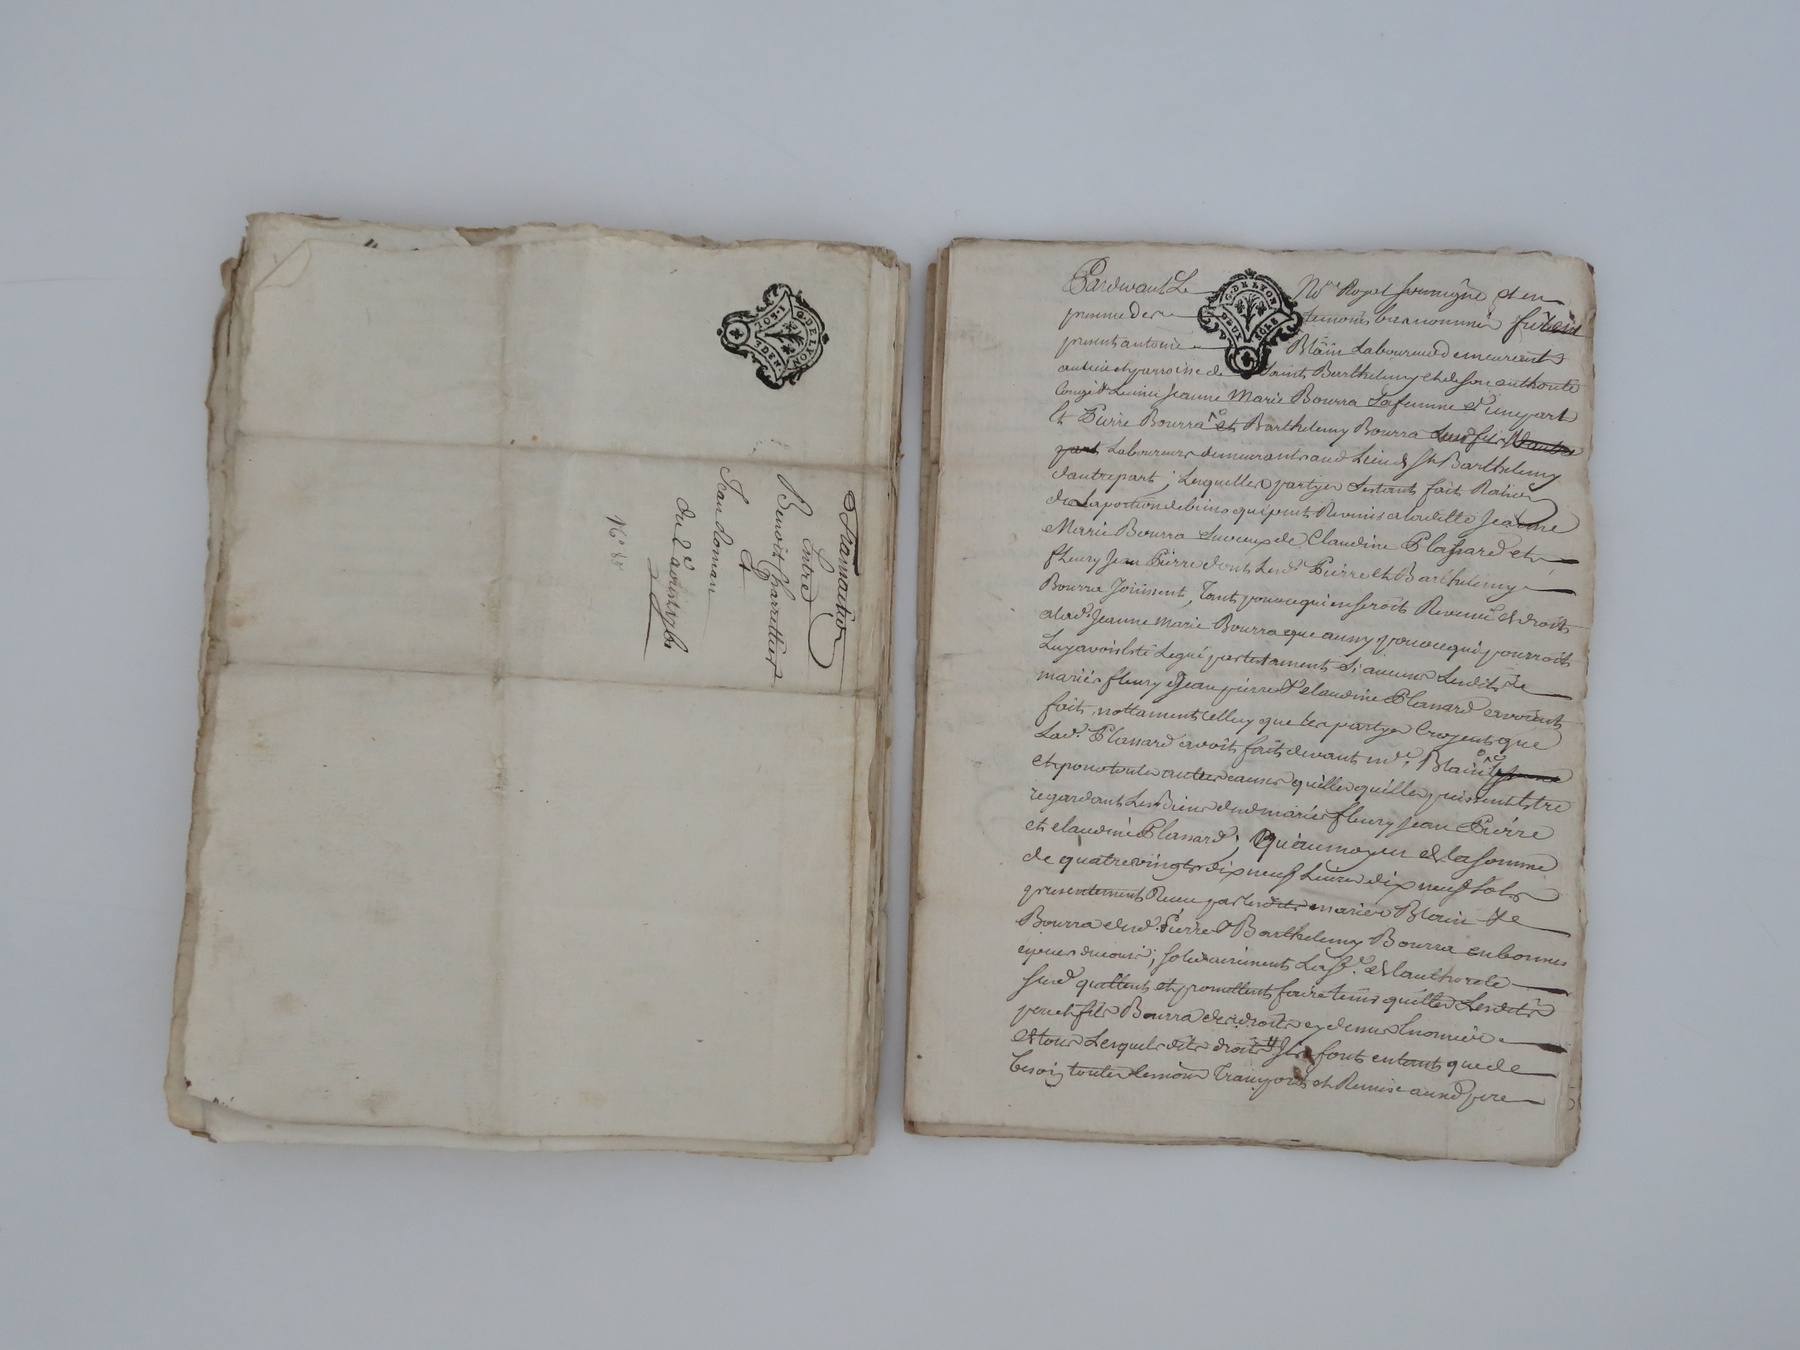 G. DE LYON
1. SOL 4 DEN.
Transaction
Entre
Benoit Charrettier
&
Jean Roman
N° 88
Pardevant Le
G. DE LYON
DEUX SOLS
No.re Royal soussigné et en
presence des temoins bas nommés furent
presents antoine Blain Laboureur demeurant
paroisse de Saint Barthelemy et de son authorité
Jeanne Marie Bourra sa femme d'une part
Et Pierre Bourra et Barthelemy Bourra
part Laboureurs demeurants aud Lieu de St Barthelemy
d'autre part ; Lesquelles partyes
de La portion de biens qui peut Revenir a laditte Jeanne
Marie Bourra de Claudine Plassard et
fleury Jean Pierre dont Lesd. Pierre et Barthelemy
Bourra Jouissent, Tant pour ce qui en seroit Revenu et droits
a lad. Jeanne Marie Bourra que aussy pour ce qui pourroit
Luy avoir esté Legué par testament si aucuns Lesdits
mariés fleury Jean pierre & claudine Plassard avoient
fait, nottament celluy que les partyes croyent que
Lad. Plassard avoit fait devant me. Blain
et pour toutes autres causes quelles quelles puissent Estre
regardant Les Biens desd mariés fleury Jean Pierre
et claudine Plassard ; Qu'au moyen de la somme
de quatre vingts dix neuf Livres dix neuf sols
presentement Receu par lesdits mariés Blain &
Bourra desd. Pierre & Barthelemy Bourra en bonnes
especes de cours ; solidairement La fe. de l'authorité
susd quittent et promettent faire tenir quittes Lesdits
pere et fils Bourra des droits cy dessus Enoncés
Et tous Lesquels dits droits Ils font entant que de
besoin toutes demissions Transport et Remise ausd pere